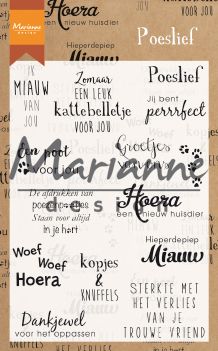 Marianne
DESIGN
Hoera
een nieuw huisdier
Poeslief
Hieperdepiep
Miauw
IK
MIAUW
VAN
JOU
Zomaar
EEN LEUK
kattebelletje
VOOR JOU
Poeslief
Jij bent
perrrfect
een poot
voor jou
Groetjes
Marianne
design
De afdrukken van
jouw pootjes
Staan voor altijd
in je hart
Hoera
een nieuw huisdier
Woef
Woef
Hoera
kopjes
&
KNUFFELS
Hieperdepiep
Miauw
STERKTE MET
HET VERLIES
VAN JE
TROUWE VRIEND
Dankjewel
voor het oppassen